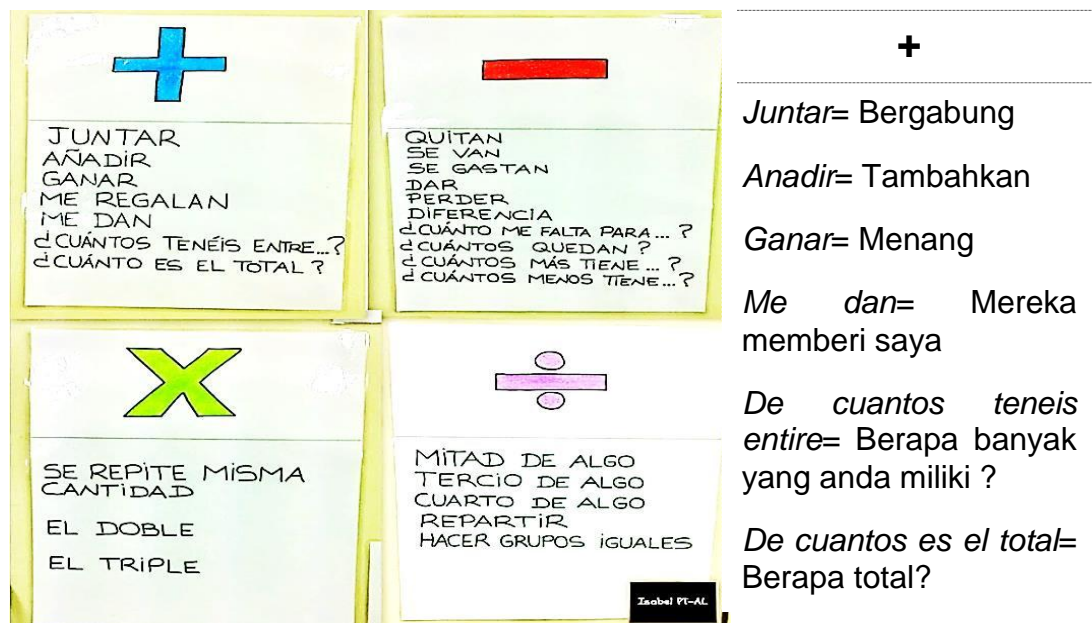 +
JUNTAR
AÑADIR
GANAR
ME REGALAN
ME DAN
¿CUÁNTOS TENÉIS ENTRE...?
¿CUÁNTO ES EL TOTAL?
QUITAN
SE VAN
SE GASTAN
DAR
PERDER
DIFERENCIA
¿CUÁNTO ME FALTA PARA... ?
¿CUÁNTOS QUEDAN?
¿CUÁNTOS MÁS TIENE ... ?
¿CUÁNTOS MENOS TIENE...?
X
SE REPITE MISMA
CANTIDAD
EL DOBLE
EL TRIPLE
÷
MITAD DE ALGO
TERCIO DE ALGO
CUARTO DE ALGO
REPARTIR
HACER GRUPOS IGUALES
Isabel PT-AL
+
Juntar= Bergabung
Anadir= Tambahkan
Ganar= Menang
Me dan= Mereka
memberi saya
De cuantos teneis
entire= Berapa banyak
yang anda miliki ?
De cuantos es el total=
Berapa total?